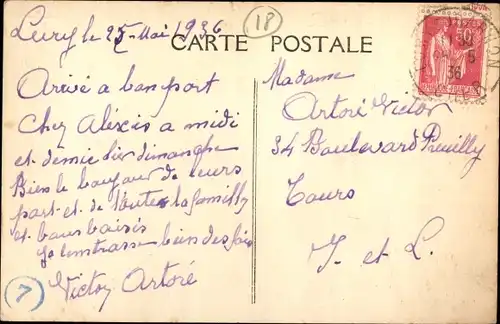 Levry le 25 Mai 1936
18
CARTE POSTALE
50c
36
Arivé a bon port
Chez Aléxis a midi
et demie hier dimanche
Bien le bonjour de leurs
part et de toutes la famille
et bons baisés
Je bien des fois
Victor Artoré
7
Madame
Artoré Victor
34 Boulevard Preuilly
Tours
I et L.